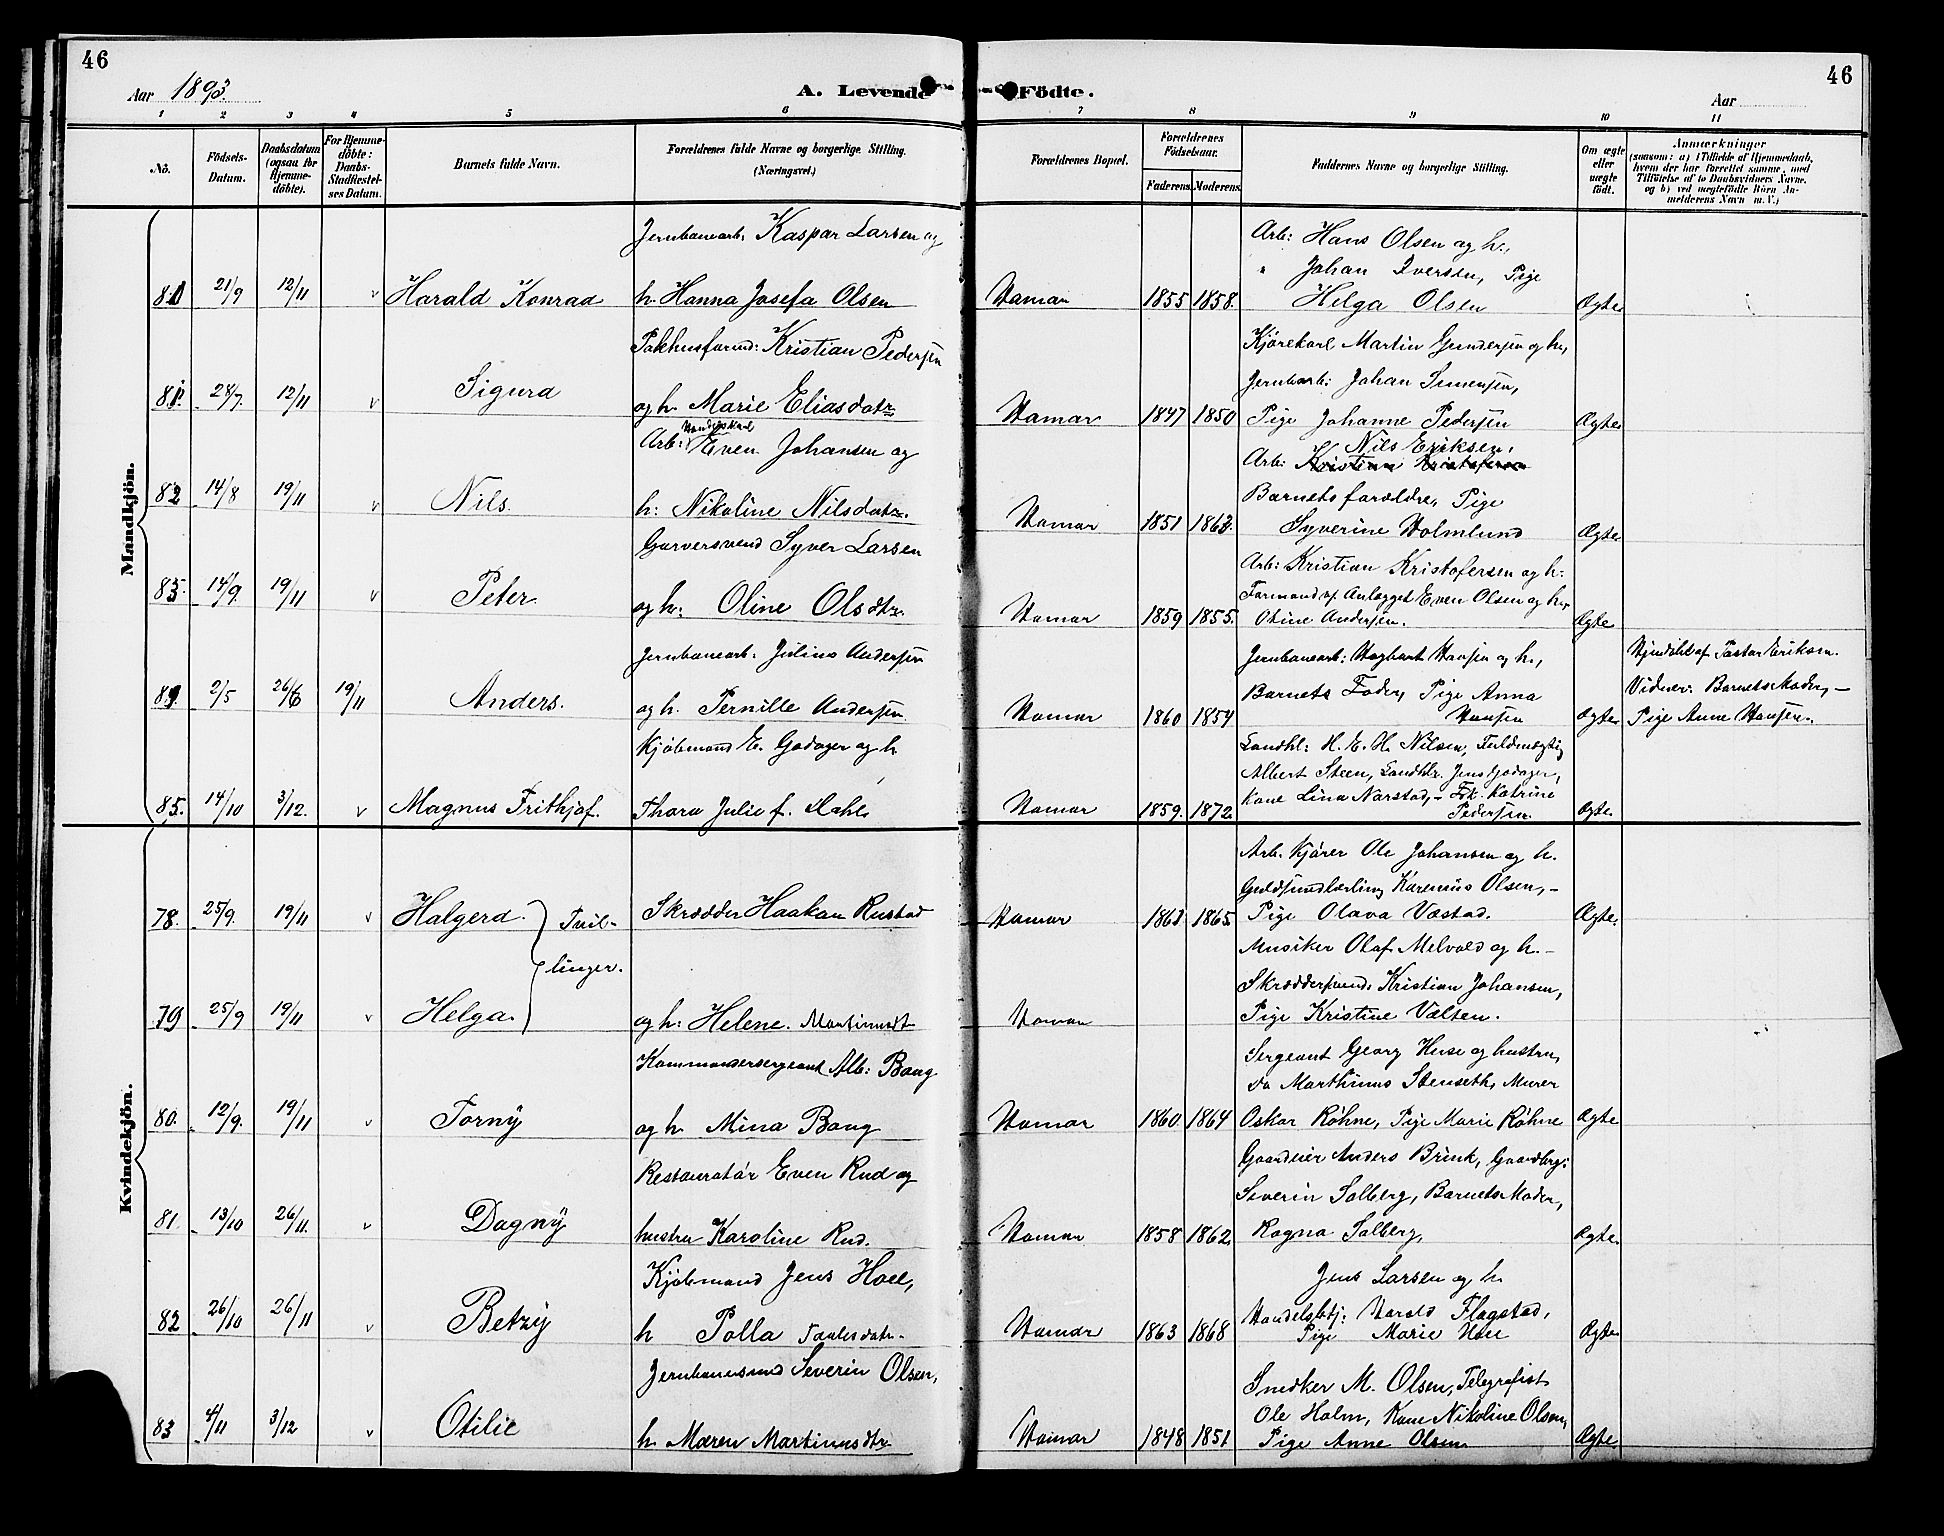 46
46
Aar 1893.
A. Levende Födte.
Aar
1 2 3 4 5 6 7 8 9 10 11
No.
Födsels-Datum.
Daabsdatum (ogsaa for Hjemmedöbte).
For Hjemmedöbte: Daabs-Stadfæstelses Datum.
Barnets fulde Navn.
Forældrenes fulde Navne og borgerlige Stilling. (Næringsvei.)
Forældrenes Bopæl.
Forældrenes Födselsaar.
Faderens. Moderens.
Faddernes Navne og borgerlige Stilling.
Om ægte eller uægte födt.
Anmærkninger (saasom: a) i Tilfælde af Hjemmedaab, hvem der har forrettet samme, med Tilföielse af to Daabsvidners Navne, og b) ved uægtefödte Börn Anmelderens Navn m.V.)
Mandkjön.
Jernbanearb. Kaspar Larsen og
Arb: Hans Olsen og h.,
" Johan Iversen, Pige
80 21/9 12/11 v Harald Konrad h. Hanna Josefa Olsen Hamar 1855 1858. Helga Olsen Ægte
Pakhusformd: Kristian Pedersen
Kjørekarl Martin Gundersen og h.,
Jernbarb: Johan Simensen,
81. 28/7. 12/11 v Sigurd og h. Marie Eliasdatr Hamar 1847 1850 Pige Johanne Pedersen Ægte
Arb: Even Johansen og
Arb: Nils Eriksen,
Kristian Kristofersen
Barnets forældre, Pige
82 14/8 19/11 v Nils. h: Nikoline Nilsdatr. Hamar 1851 1862. Syverine Holmlund Ægte
Garversvend Syver Larsen
Arb: Kristian Kristofersen og h:
Formand v. Anlægget Even Olsen og h.,
83. 14/9. 19/11 v Peter. og h: Oline Olsdtr. Hamar 1859 1855. Otine Andersen. Ægte
Jernbanearb. Julius Andersen
Jernbanearb: Hagbart Hansen og h.,
Hjemdøbt af Pastor Eriksen.
Barnets Fader, Pige Anna
Vidner: Barnets Moder, —
84 2/5 26/6 19/11 Anders. og h. Pernille Andersen Hamar 1860 1854 Hansen Ægte Pige Anne Hansen.
Kjøbmand E. Godager og h
Landhl: H. E. H. Nilsen, Fuldmægtig
Albert Steen, Landhlr. Jens Godager,
Kone Lina Narstad, — Frk. Katrine
85. 14/10 3/12. v Magnus Frithjof. Thora Julie f. Dahl Hamar 1859. 1872. Pedersen. Ægte
Kvindekjön.
Arb. Kjører Ole Johansen og h.
Guldsmedlærling Karenius Olsen, —
78. 25/9. 19/11 v Halgerd. Tvillinger. Skrædder Haakan Rustad Hamar 1863 1865 Pige Olava Væstad. Ægte.
Musiker Olaf Melvold og h. —
Skræddersvend Kristian Johansen,
79 25/9 19/11 v Helga. og h: Helene. Martinusdt Hamar Pige Kristine Valsen.
Kommandersergeant Alb: Bang
Sergeant Georg Huse og hustru,
do Marthinus Stenseth, Murer
80. 12/9. 19/11 v Torny og h. Mina Bang Hamar 1860. 1864 Oskar Røhne, Pige Marie Røhne Ægte
Restauratør Even Rud og
Gaardeier Anders Brink, Gaardbrg:
Severin Solberg, Barnets Moder,
81 13/10 26/11. v Dagny hustru Karoline Rud. Hamar 1858 1862. Ragna Solberg, Ægte.
Kjøbmand Jens Hoel,
Jens Larsen og h.
Handelsbtj: Harald Flagstad,
82 26/10 26/11 v Betzy h Polla Hamar 1863 1868 Pige Marie Ægte
Jernbanemand Severin Olsen,
Snedker M. Olsen, Telegrafist
Ole Holm, Kone Nikoline Olsen,
83 4/11 3/12 v Otilie h. Maren Martinusdtr Hamar 1848 1851 Pige Anne Olsen Ægte